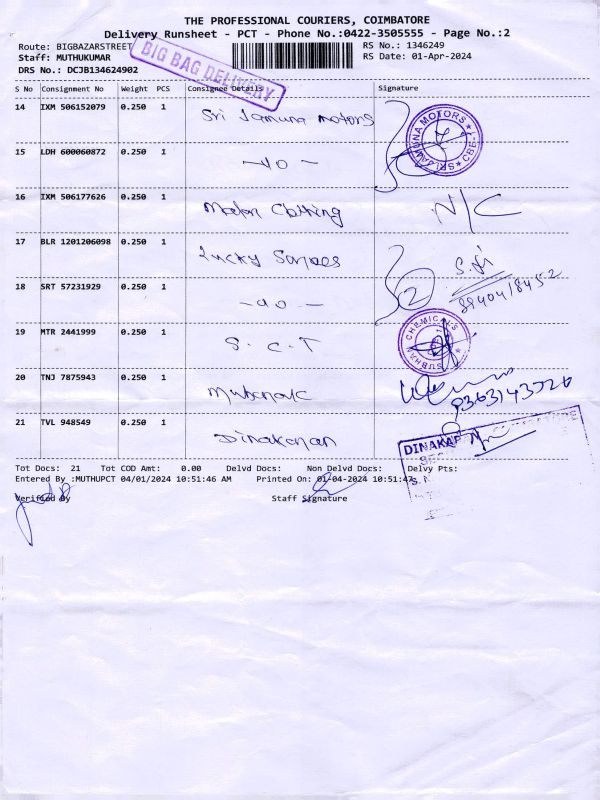 THE PROFESSIONAL COURIERS, COIMBATORE
Delivery Runsheet - PCT - Phone No.:0422-3505555 - Page No.:2
Route: BIGBAZARSTREET RS No.: 1346249
Staff: MUTHUKUMAR RS Date: 01-Apr-2024
DRS No.: DCJB134624902
BIG BAG DELIVERY
S No Consignment No Weight PCS Consignee Details Signature
14 IXM 506152079 0.250 1 Sri Jamuna Motors
SRI JAMUNA MOTORS CBE-1
15 LDH 600060872 0.250 1 -do-
16 IXM 506177626 0.250 1 Clothing N/C
17 BLR 1201206098 0.250 1 Lucky Sarees
18 SRT 57231929 0.250 1 -do- 8940418452
19 MTR 2441999 0.250 1 S.C.T
SUBHAM CHEMICALS
20 TNJ 7875943 0.250 1 Mubarak
21 TVL 948549 0.250 1 Dinakaran
DINAKAR
Tot Docs: 21 Tot COD Amt: 0.00 Delvd Docs: Non Delvd Docs: Delvy Pts:
Entered By :MUTHUPCT 04/01/2024 10:51:46 AM Printed On: 01-04-2024 10:51:47
Verified By Staff Signature